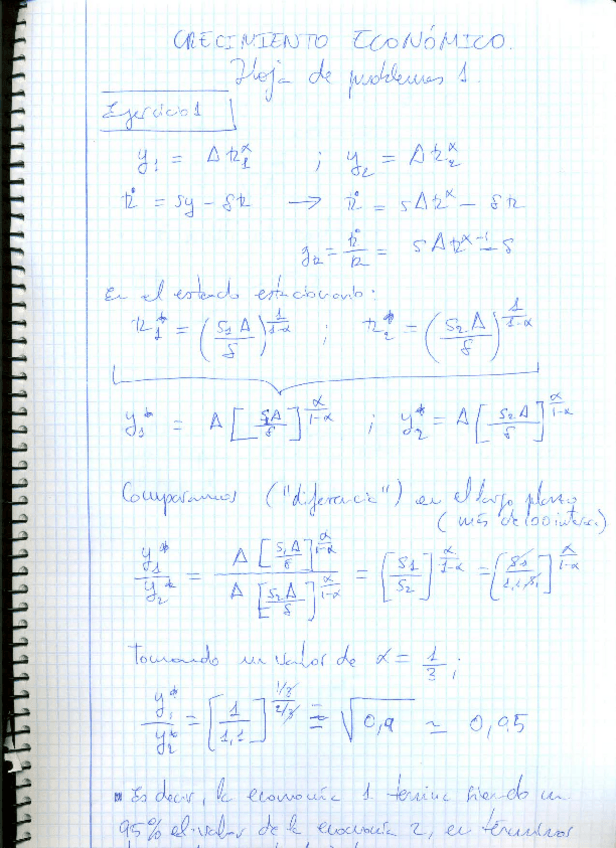 CRECIMIENTO ECONÓMICO.
Hoja de problemas 1.
Ejercicio 1
y₁ = A k₁^α ; y₂ = A k₂^α
k̇ = sy - δk → k̇ = sAk^α - δk
g_k = k̇/k = sAk^(α-1) - δ
En el estado estacionario:
k₁* = (s₁A/δ)^(1/(1-α)) ; k₂* = (s₂A/δ)^(1/(1-α))
y₁* = A[s₁A/δ]^(α/(1-α)) ; y₂* = A[s₂A/δ]^(α/(1-α))
Comparamos ("diferencia") en el largo plazo
(más de 100
y₁*/y₂* = A[s₁A/δ]^(α/(1-α)) / A[s₂A/δ]^(α/(1-α)) = [s₁/s₂]^(α/(1-α)) = [s₁/1,1s₁]^(α/(1-α))
Tomando un valor de α = 1/3 ;
y₁*/y₂* = [1/1,1]^((1/3)/(2/3)) = √0,9 ≃ 0,95
Es decir, la economía 1 termina siendo un
95% el valor de la economía 2, en términos